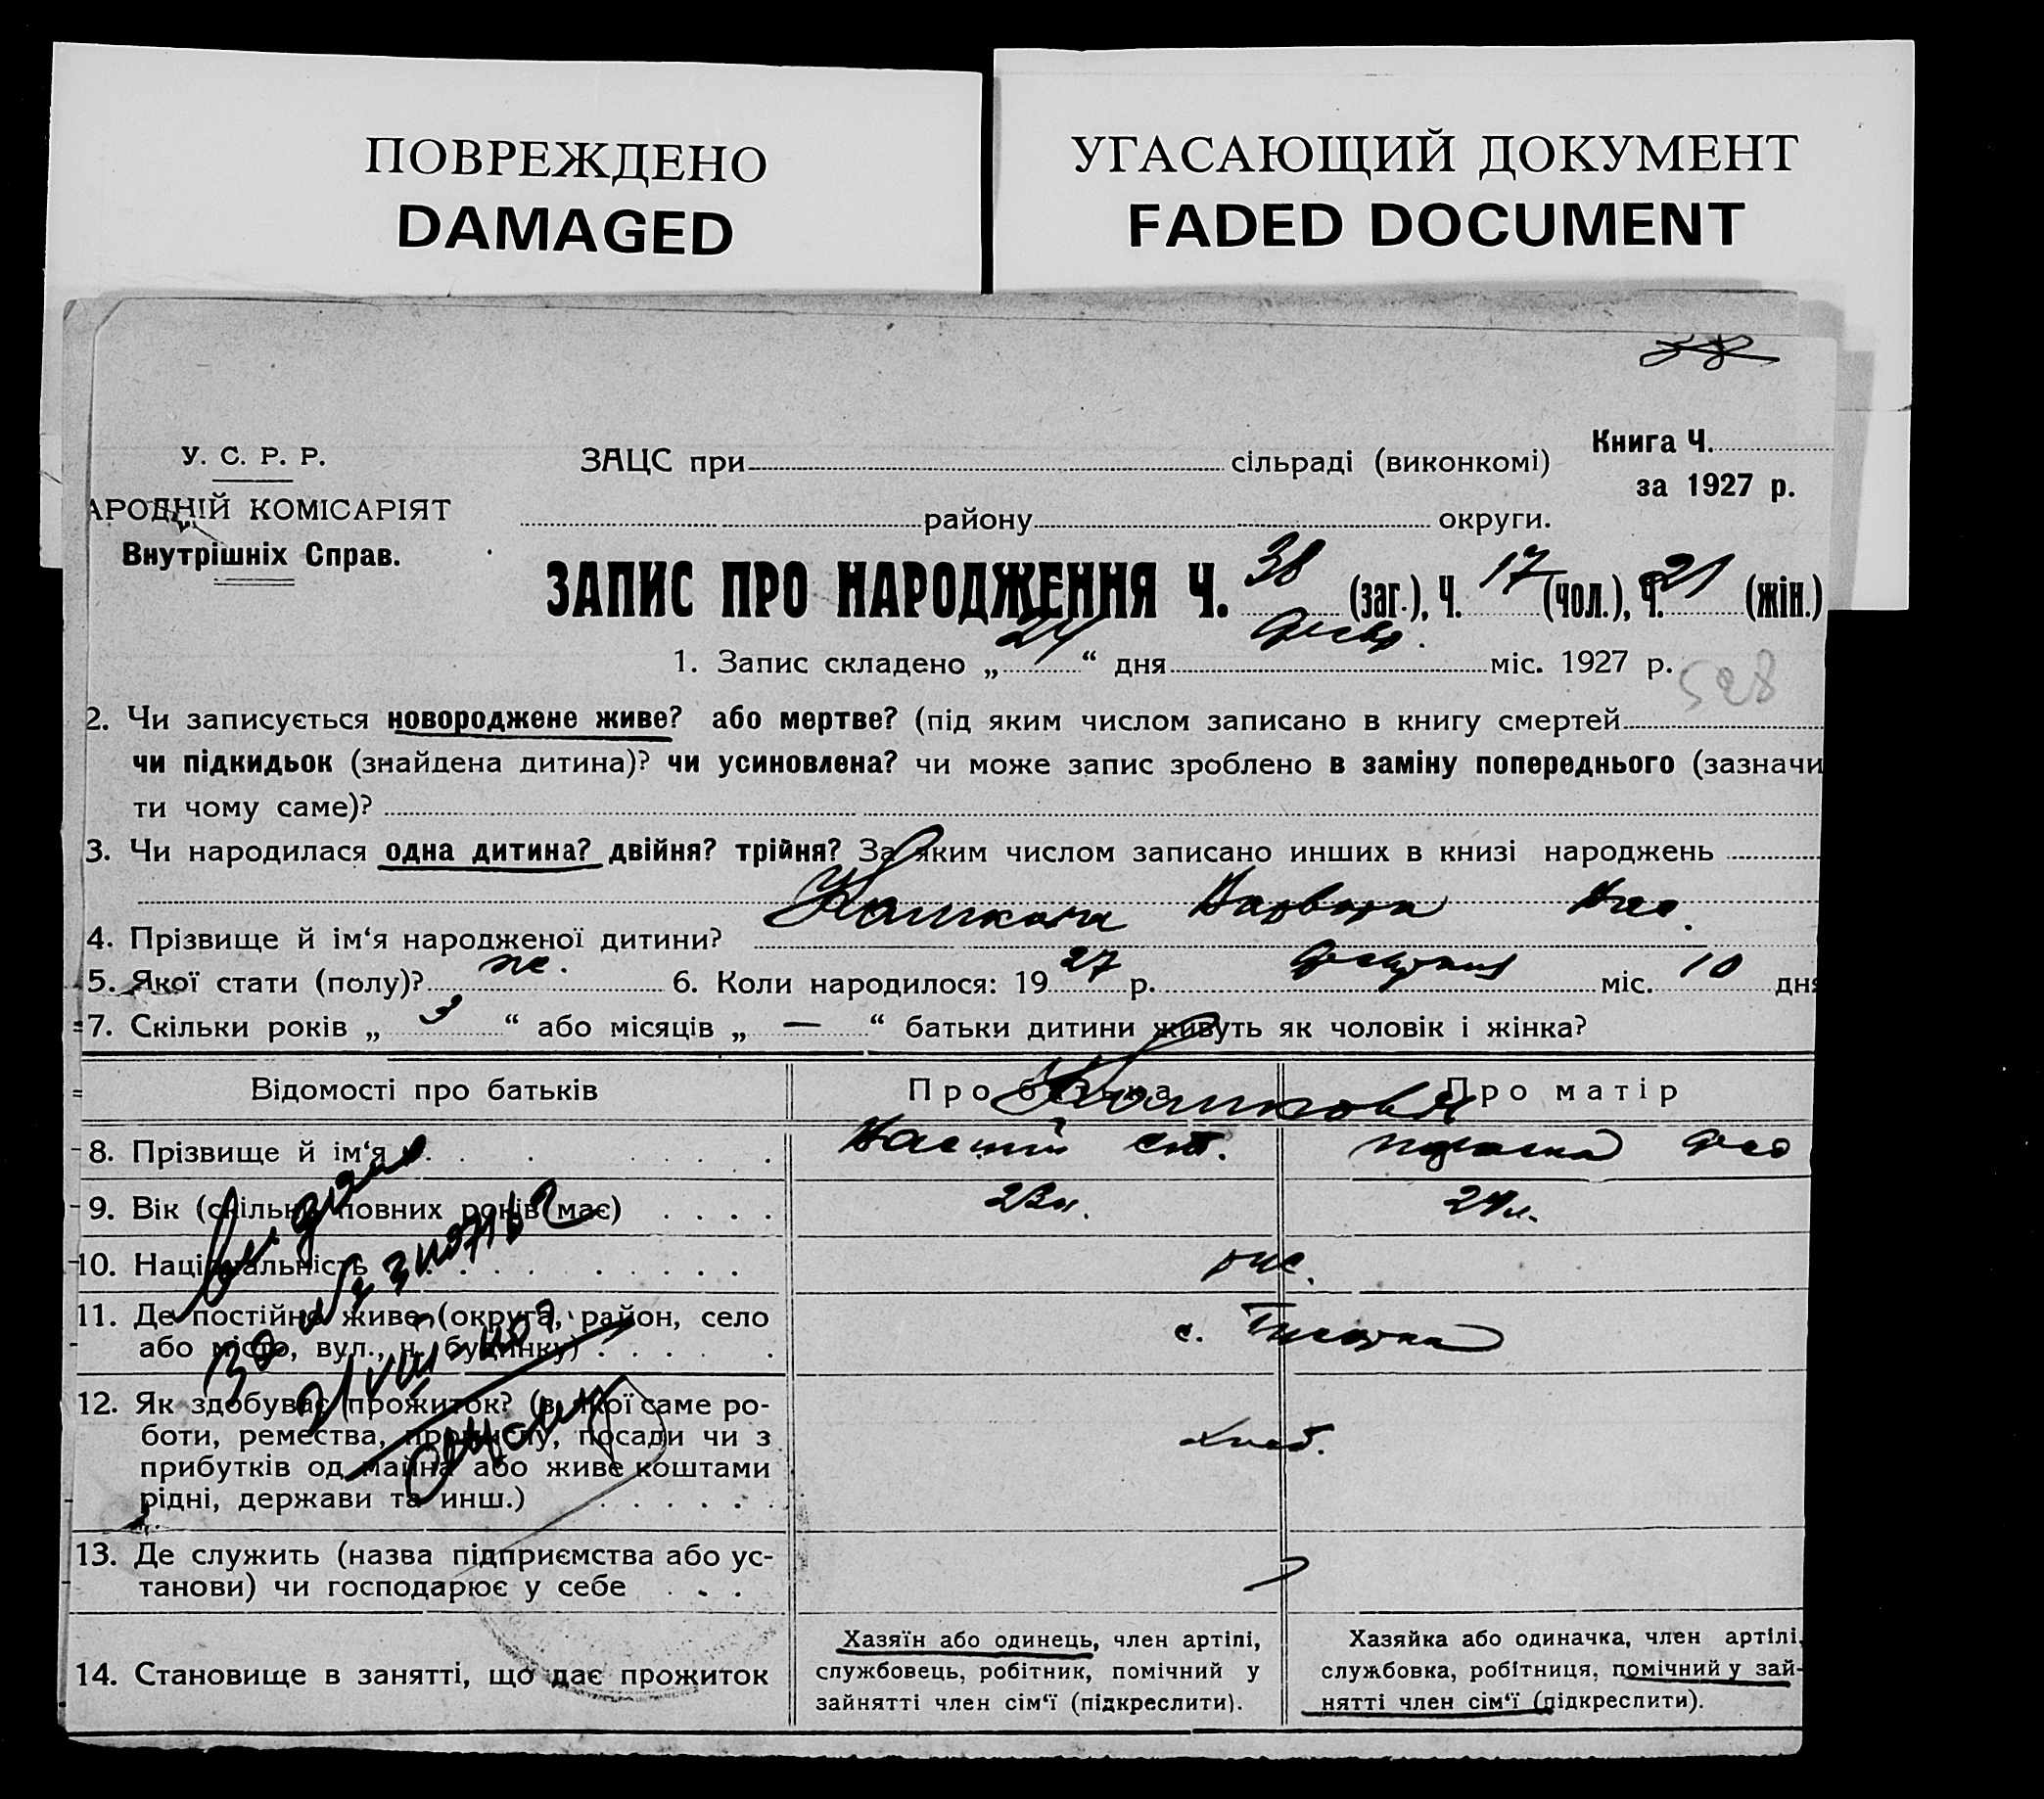 ПОВРЕЖДЕНО
DAMAGED
УГАСАЮЩИЙ ДОКУМЕНТ
FADED DOCUMENT
38
У. С. Р. Р.
АРОДНІЙ КОМІСАРІЯТ
Внутрішніх Справ.
ЗАЦС при сільраді (виконкомі)
району округи.
Книга Ч.
за 1927 р.
ЗАПИС ПРО НАРОДЖЕННЯ Ч. 38 (заг.), Ч. 17 (чол.), Ч. 21 (жін.)
1. Запис складено „ 24 “ дня февр. міс. 1927 р.
528
2. Чи записується новороджене живе? або мертве? (під яким числом записано в книгу смертей
чи підкидьок (знайдена дитина)? чи усиновлена? чи може запис зроблено в заміну попереднього (зазначи
ти чому саме)?
3. Чи народилася одна дитина? двійня? трійня? За яким числом записано инших в книзі народжень
4. Прізвище й ім‘я народженої дитини? Варвара Вас.
5. Якої стати (полу)? ж. 6. Коли народилося: 1927 р. міс. 10 дня
7. Скільки років „ 3 “ або місяців „ — “ батьки дитини живуть як чоловік і жінка?
Відомості про батьків
Про батька
Про матір
8. Прізвище й ім‘я
9. Вік (скільки повних років має) 23 л. 24 л.
10. Національність рус.
11. Де постійно живе (округа, район, село
або місто, вул., ч. будинку) с.
12. Як здобуває прожиток? (в якої саме ро-
боти, ремества, промислу, посади чи з
прибутків од майна або живе коштами
рідні, держави та инш.) хлеб.
13. Де служить (назва підприємства або ус-
танови) чи господарює у себе
14. Становище в занятті, що дає прожиток
Хазяїн або одинець, член артілі,
службовець, робітник, помічний у
зайнятті член сім‘ї (підкреслити).
Хазяйка або одиначка, член артілі,
службовка, робітниця, помічний у зай-
нятті член сім‘ї (підкреслити).